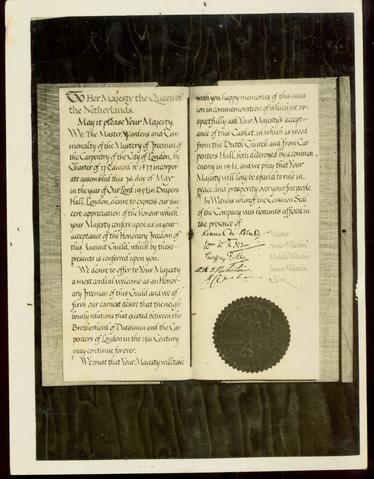 To Her Majesty the Queen of
the Netherlands.
May it please Your Majesty,
We, The Master, Wardens and Com-
monalty of the Mystery of Freemen of
the Carpentry of the City of London, by
Charter of 17 Edward IV 1477 incorpor-
ate assembled this day of May
in the year of Our Lord in Drapers
Hall, London, desire to express our sin-
cere appreciation of the honour which
your Majesty confers upon us in your
acceptance of the Honorary Freedom of
this Ancient Guild, which by these
presents is conferred upon you.
We desire to offer to Your Majesty
a most cordial welcome as an Honor-
ary Freeman of this Guild and we af-
firm our earnest desire that the neigh-
bourly relations that existed between the
Brotherhood of Dutchmen and the Car-
penters of London in the 15th Century
may continue forever.
We trust that Your Majesty will take
with you happy memories of this occas-
ion in commemoration of which we re-
spectfully ask Your Majesty's accept-
ance of this Casket, in which is wood
from the Dutch Church and from Car-
penters Hall, both destroyed by a common
enemy in 1941, and we pray that Your
Majesty will long be spared to rule in
peace and prosperity over your free people.
In Witness whereof the Common Seal
of the Company was hereunto affixed in
the presence of
Master
Senior Warden
Middle Warden
Junior Warden
Clerk